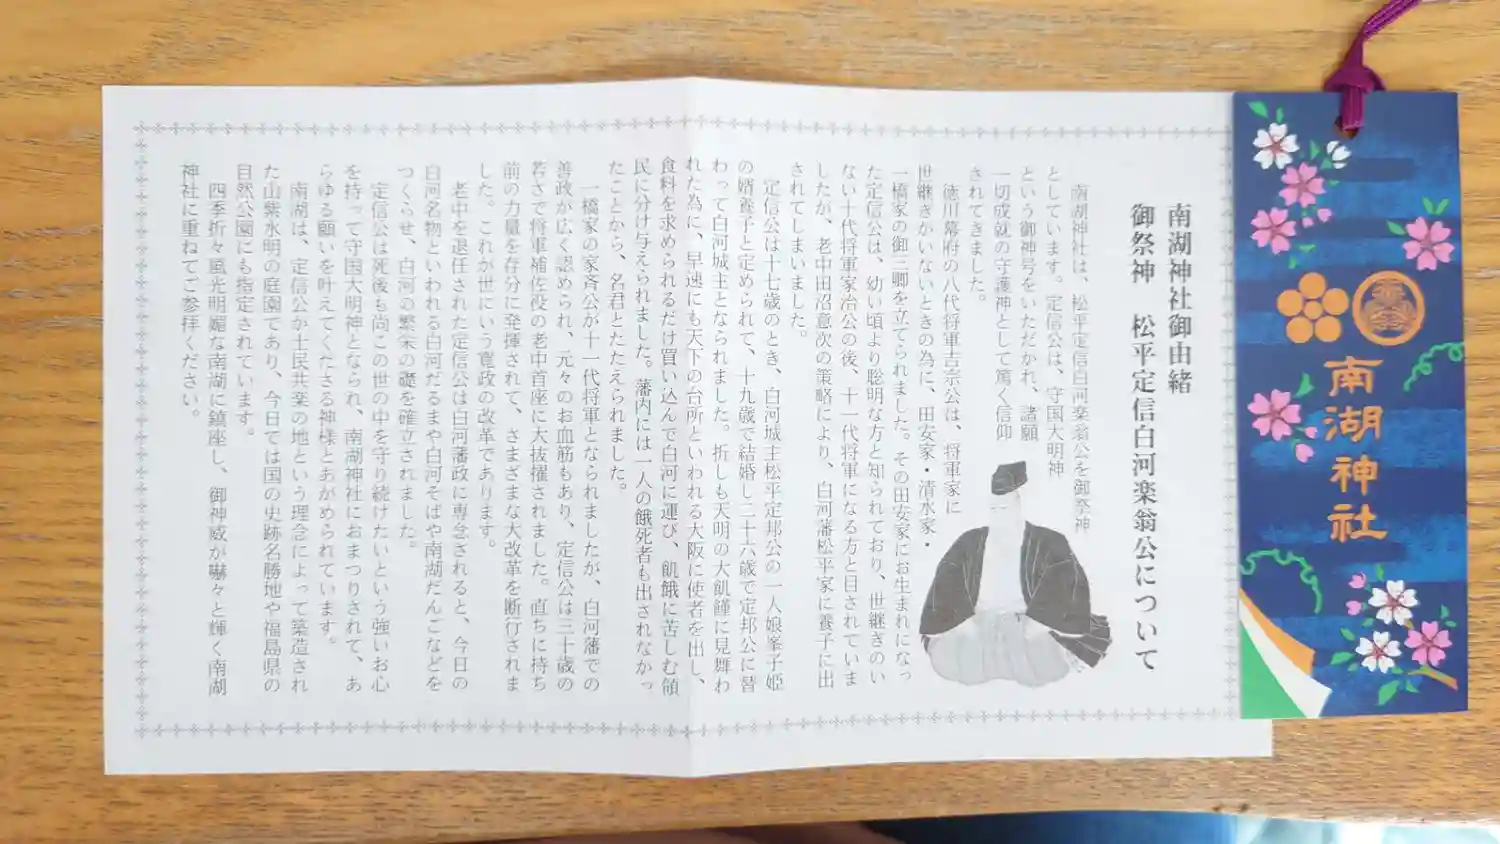 南湖神社御由緒
御祭神　松平定信白河楽翁公について
南湖神社は、松平定信白河楽翁公を御祭神
としています。定信公は、守国大明神
という御神号をいただかれ、諸願
一切成就の守護神として篤く信仰
されてきました。
徳川幕府の八代将軍吉宗公は、将軍家に
世継ぎがいないときの為に、田安家・清水家・
一橋家の御三卿を立てられました。その田安家にお生まれになっ
た定信公は、幼い頃より聡明な方と知られており、世継ぎのい
ない十代将軍家治公の後、十一代将軍になる方と目されていま
したが、老中田沼意次の策略により、白河藩松平家に養子に出
されてしまいました。
定信公は十七歳のとき、白河城主松平定邦公の一人娘峯子姫
の婿養子と定められて、十九歳で結婚し二十六歳で定邦公に替
わって白河城主となられました。折しも天明の大飢饉に見舞わ
れた為に、早速にも天下の台所といわれる大阪に使者を出し、
食料を求められるだけ買い込んで白河に運び、飢餓に苦しむ領
民に分け与えられました。藩内には一人の餓死者も出されなかっ
たことから、名君とたたえられました。
一橋家の家斉公が十一代将軍となられましたが、白河藩での
善政が広く認められ、元々のお血筋もあり、定信公は三十歳の
若さで将軍補佐役の老中首座に大抜擢されました。直ちに持ち
前の力量を存分に発揮されて、さまざまな大改革を断行されま
した。これが世にいう寛政の改革であります。
老中を退任された定信公は白河藩政に専念されると、今日の
白河名物といわれる白河だるまや白河そばや南湖だんごなどを
つくらせ、白河の繁栄の礎を確立されました。
定信公は死後も尚この世の中を守り続けたいという強いお心
を持って守国大明神となられ、南湖神社におまつりされて、あ
らゆる願いを叶えてくださる神様とあがめられています。
南湖は、定信公が士民共楽の地という理念によって築造され
た山紫水明の庭園であり、今日では国の史跡名勝地や福島県の
自然公園にも指定されています。
四季折々風光明媚な南湖に鎮座し、御神威が嚇々と輝く南湖
神社に重ねてご参拝ください。
南湖神社